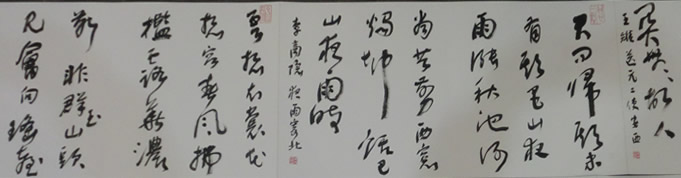 關無故人
王維送元二使安西
君問歸期未
有期巴山夜
雨漲秋池何
當共剪西窗
燭却話巴
山夜雨時
李商隱夜雨寄北
雲想衣裳花
想容春風拂
檻露華濃
若非群玉山頭
見會向瑤臺